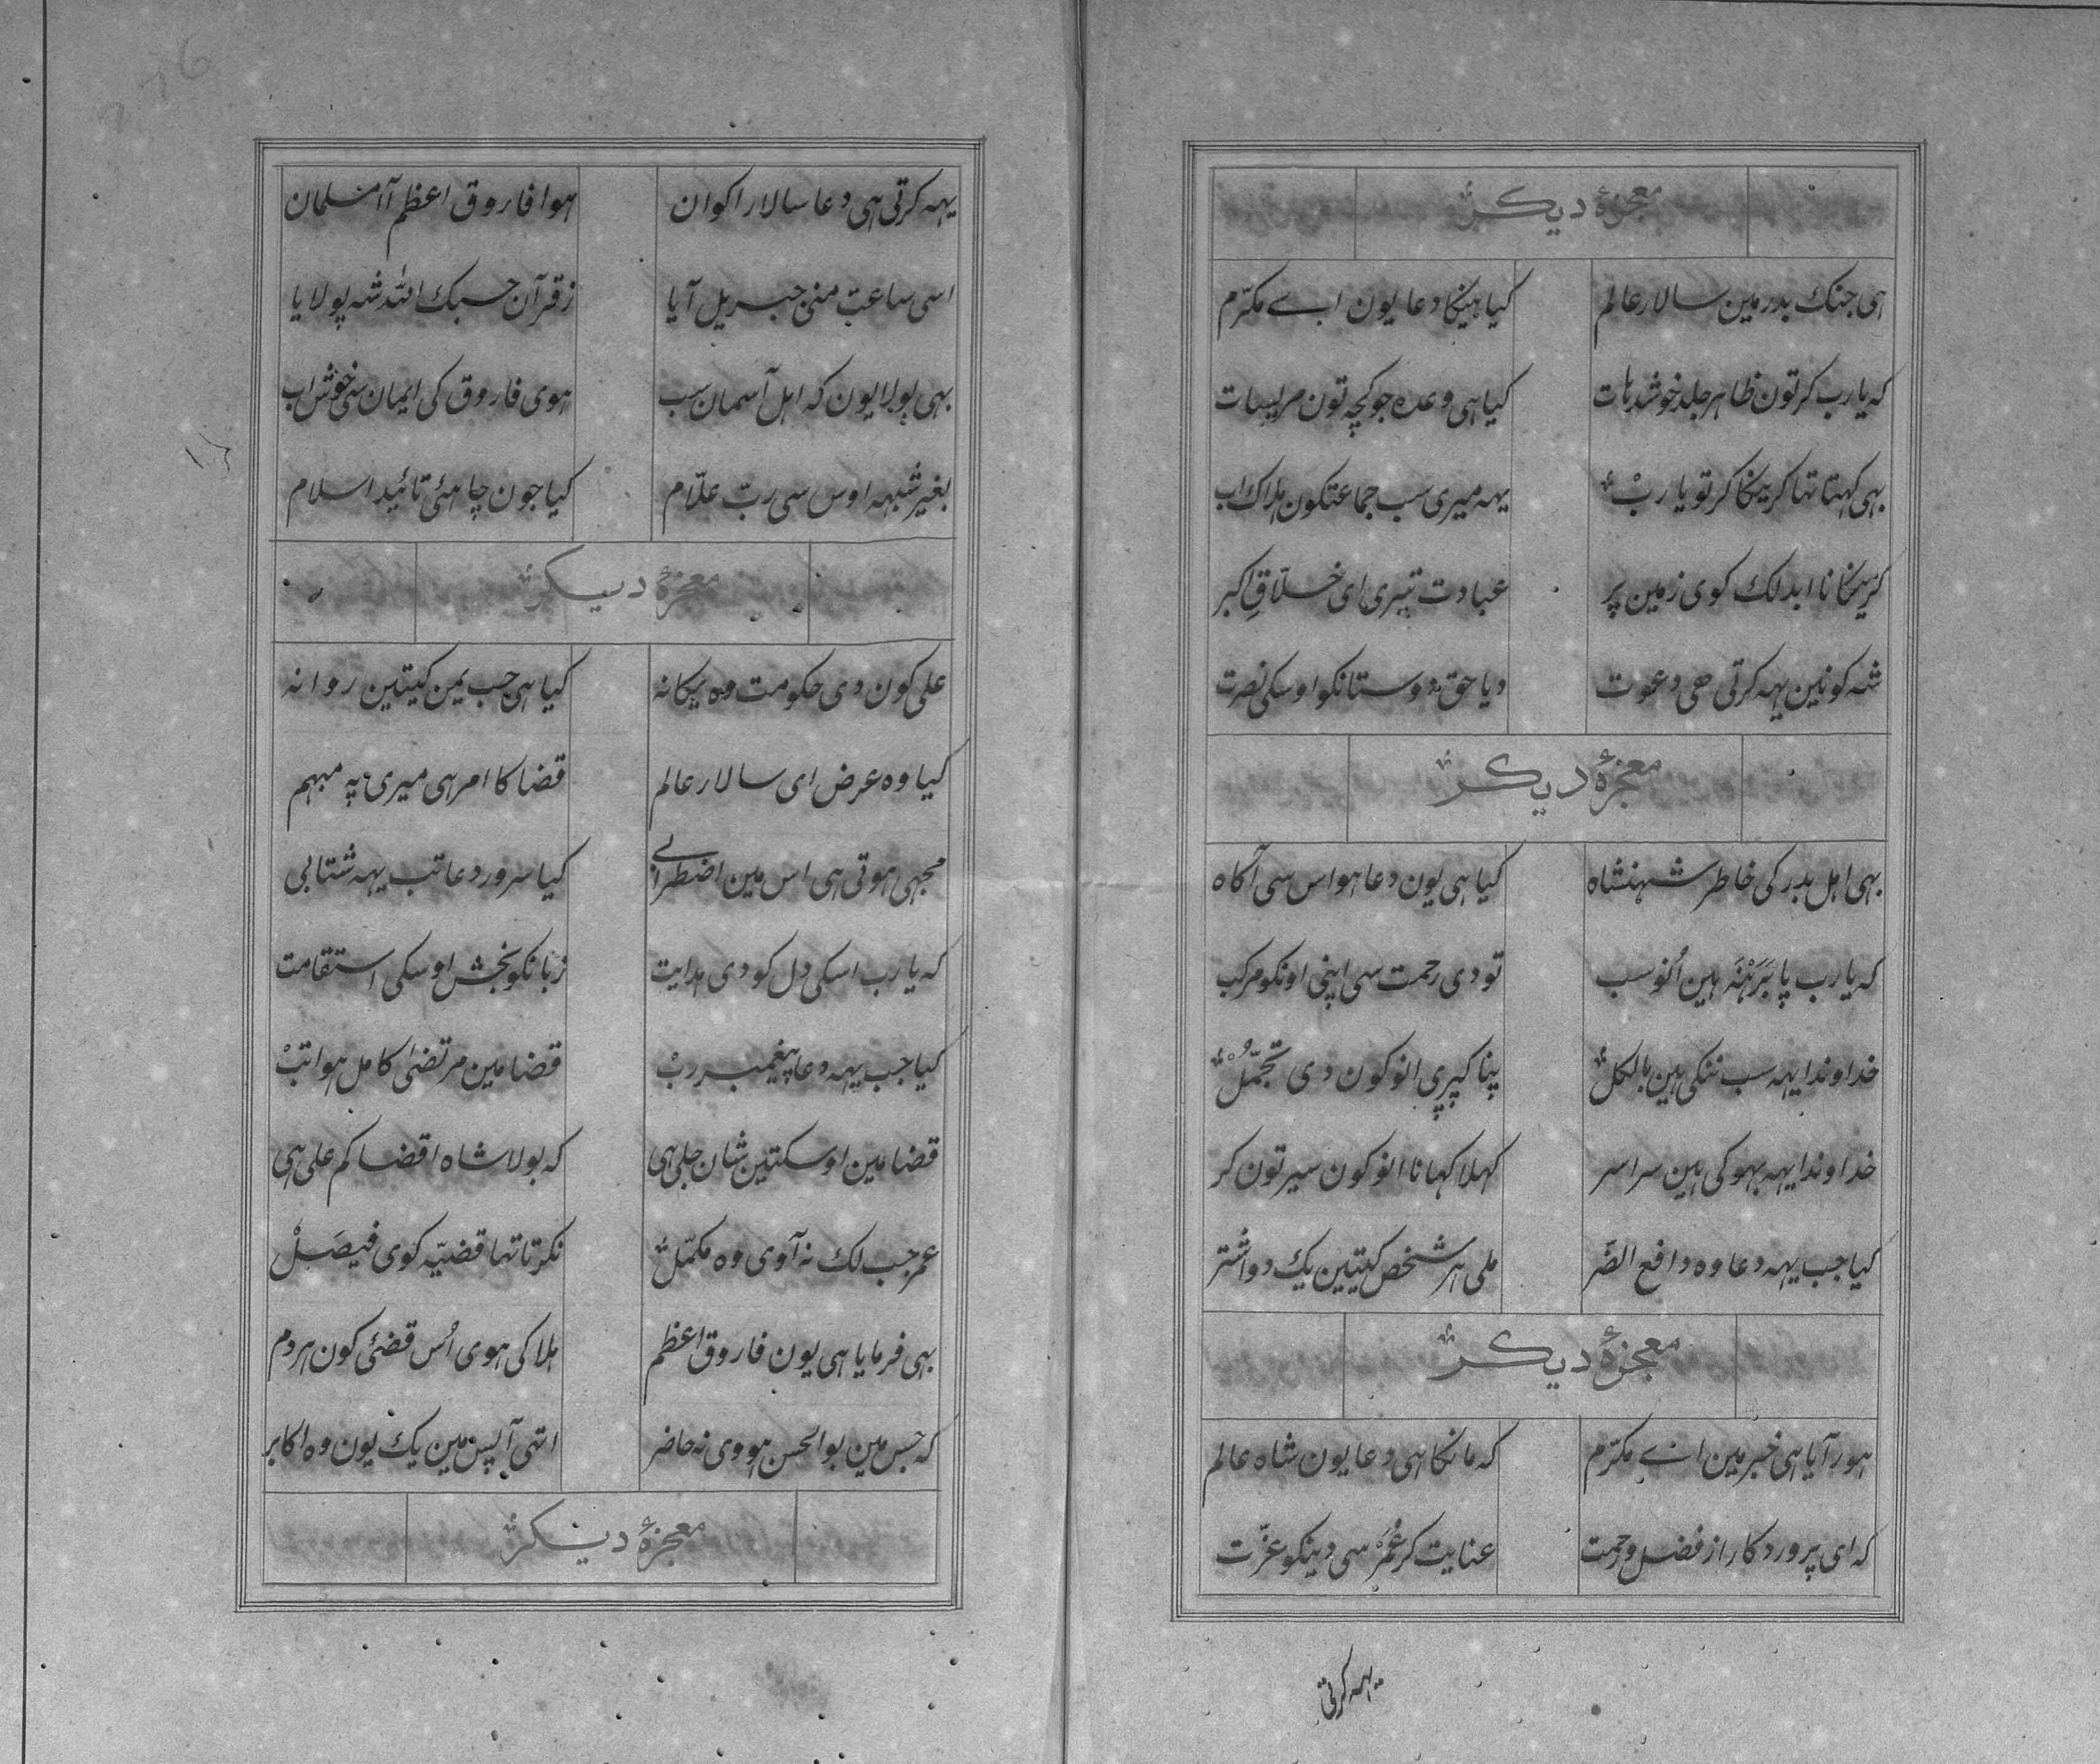 معجزۂ دیکر
اہی جنک بدر مین سالار عالم کیا ہینکا دعا یون اے مکرّم
کہ یا رب کر تون ظاہر جلد خوشدہات کیا ہی وعدہ جو کچہ تون مریسات
بہی کہتا تہا کر ینکا کر تو یا ربْ یہہ میری سب جماعتکون ہلاک اب
کرینکا نا ابد لک کوی زمین پر عبادت تیری ای خلّاقِ اکبر
شہ کونین یہہ کرتی ھی دعوت دیا حق دوستانکو اوسکی نصرت
معجزۂ دیکر
بہی اہل بدر کی خاطر شہنشاہ کیا ہی یون دعا ہو اس سی آکاہ
کہ یا رب پا بَرَہْنَہ ہین اُنو سب تو دی رحمت سی اپنی اونکو مرکب
خداوندا یہہ سب ننکی ہین بالکلْ پنا کپڑی انو کون دی تجمّلْ
خداوندا یہہ بہوکی ہین سراسر کہلا کہانا انو کون سیر تون کر
کیا جب یہہ دعا وہ دافع الضّر ملی ہر شخص کیتین یک دو اشتر
معجزۂ دیکر
ہور آیا ہی خبر مین اے مکرّم کہ مانکا ہی دعا یون شاہ عالم
کہ ای پروردکار از فضل و رحمت عنایت کر عُمَرْ سی دینکو عزّت
یہہ کرتی
یہہ کرتی ہی دعا سالار اکوان ہوا فاروق اعظم آ مسلمان
اسی ساعت منی جبریل آیا ز قرآن حسبک اللہ شہ پو لایا
بہی بولا یون کہ اہل آسمان سب ہوی فاروق کی ایمان سی خوش اب
بغیر شبہہ اوس سی ربّ علّام کیا جون چاہئی تائید اسلام
معجزۂ دیکر
علی کون دی حکومت وہ یکانہ کیا ہی جب یمن کیتین روانہ
کیا وہ عرض ای سالار عالم قضا کا امر ہی میری پہ مبہم
مجہی ہوتی ہی اس مین اضطرابی کیا سرور دعا تب یہہ شتابی
کہ یا رب اسکی دل کو دی ہدایت زبانکو بخش اوسکی استقامت
کیا جب یہہ دعا پیغمبر ربْ قضا مین مرتضیٰ کامل ہوا تبْ
قضا مین اوسکتین شان جلی ہی کہ بولا شاہ اقضاکم علی ہی
عمر جب لک نہ آوی وہ مکمّلْ نکرتا تہا قضیّہ کوی فیصَلْ
بہی فرمایا ہی یون فاروق اعظم ہلاکی ہوی اُس قضئی کون ہردم
کہ جس مین بوالحسن ہووی نہ حاضر اتہی آپس مین یک یون وہ اکابر
معجزۂ دیکر